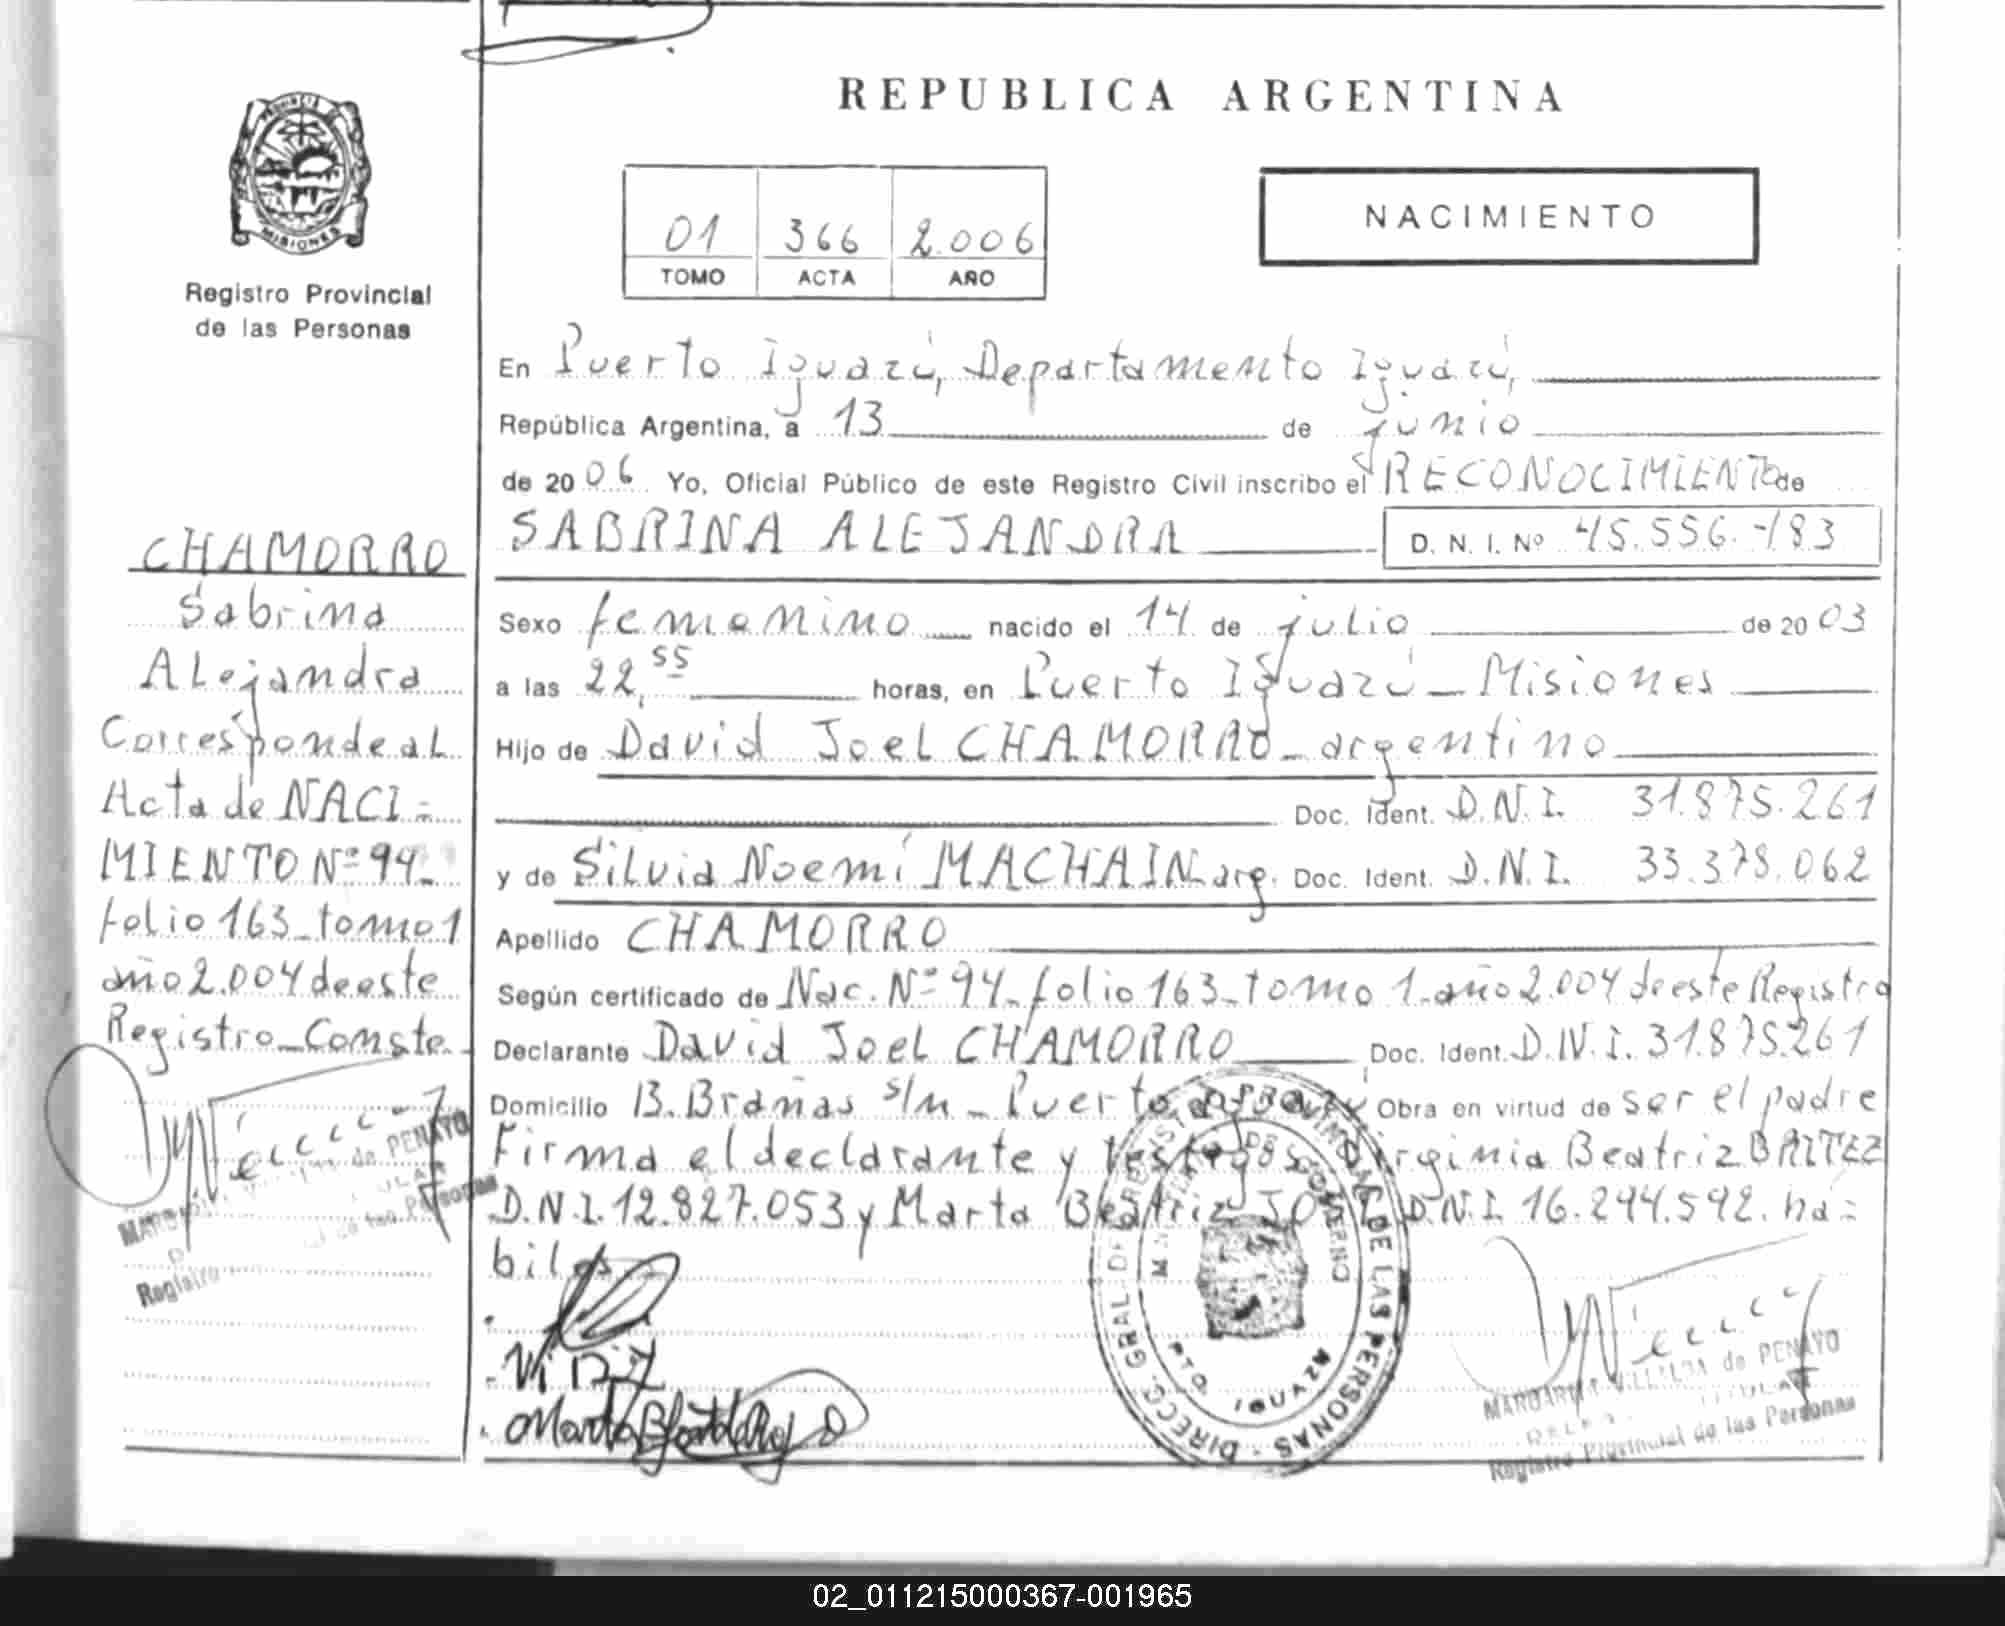 REPUBLICA ARGENTINA
PROVINCIA
MISIONES
Registro Provincial
de las Personas
01 366 2.006
TOMO ACTA AÑO
NACIMIENTO
CHAMORRO
Sabrina
Alejandra
Corresponde al
Acta de NACI=
MIENTO Nº 94_
folio 163_tomo 1
año 2.004 de este
Registro_Conste_
de PENAYO
Registro
En Puerto Iguazú, Departamento Iguazú,
República Argentina, a 13 de junio
de 2006 Yo, Oficial Público de este Registro Civil inscribo el RECONOCIMIENTO de
SABRINA ALEJANDRA D. N. I. Nº 45.556.183
Sexo femenino nacido el 14 de julio de 2003
a las 22,55 horas, en Puerto Iguazú_Misiones
Hijo de David Joel CHAMORRO_argentino
Doc. Ident. D.N.I. 31.875.261
y de Silvia Noemí MACHAIN_arg. Doc. Ident. D.N.I. 33.378.062
Apellido CHAMORRO
Según certificado de Nac. Nº 94_folio 163_tomo 1_año 2.004 de este Registro
Declarante David Joel CHAMORRO Doc. Ident. D.N.I. 31.875.261
Domicilio B. Brañas s/n_Puerto Obra en virtud de ser el padre
Firma el declarante y testigos Virginia Beatriz BRITEZ
D.N.I. 12.827.053 y Marta Beatriz D.N.I. 16.244.592. há=
biles
DIRECC. GRAL. DE REGISTRO PROVINCIAL DE LAS PERSONAS
DE GOBIERNO
PTO. IGUAZU
MARGARITA VILLALBA de PENAYO
TITULAR
Registro Provincial de las Personas
02_011215000367-001965